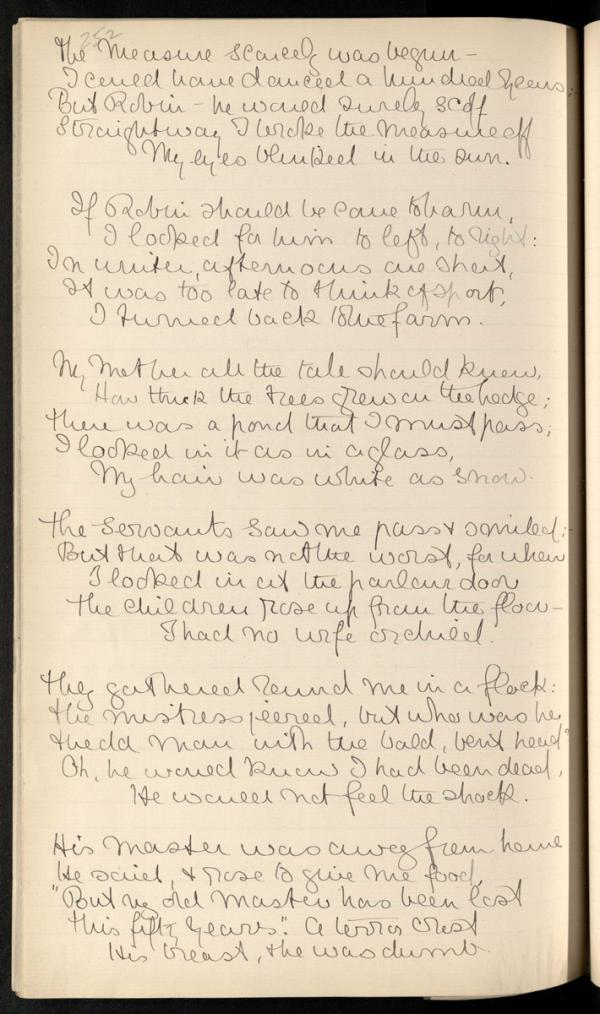 252
The measure scarcely was begun -
I could have danced a hundred years;
But Robin - he would surely scoff
Straightway I broke the measure off
My eyes blinked in the sun.
If Robin should be come to harm,
I looked for him to left, to right:
In winter, afternoons are short,
It was too late to think of sport,
I turned back to the farm.
My Mother all the tale should know,
How thick the trees grew on the hedge;
There was a pond that I must pass;
I looked in it as in a glass,
My hair was white as snow.
The servants saw me pass & smiled;
But that was not the worst, for when
I looked in at the parlour door
The children rose up from the floor -
I had no wife or child.
They gathered round me in a flock:
The mistress peered, but who was he,
the old man with the bald, bent head?
Oh, he would know I had been dead,
He would not feel the shock.
His master was away from home
He said, & rose to give me food,
"But my old master has been lost
This fifty years". A terror crost
His breast, & he was dumb.